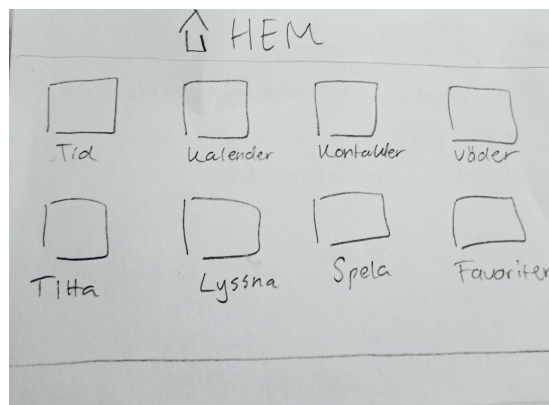 HEM
Tid Kalender Kontakter väder
Titta Lyssna Spela Favoriter